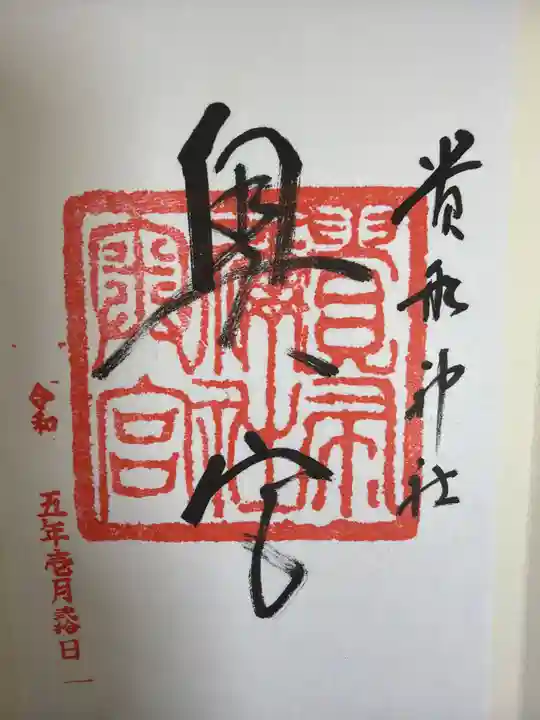 貴船神社
奥宮
貴船
神社
奥宮
令和
五年壱月
日